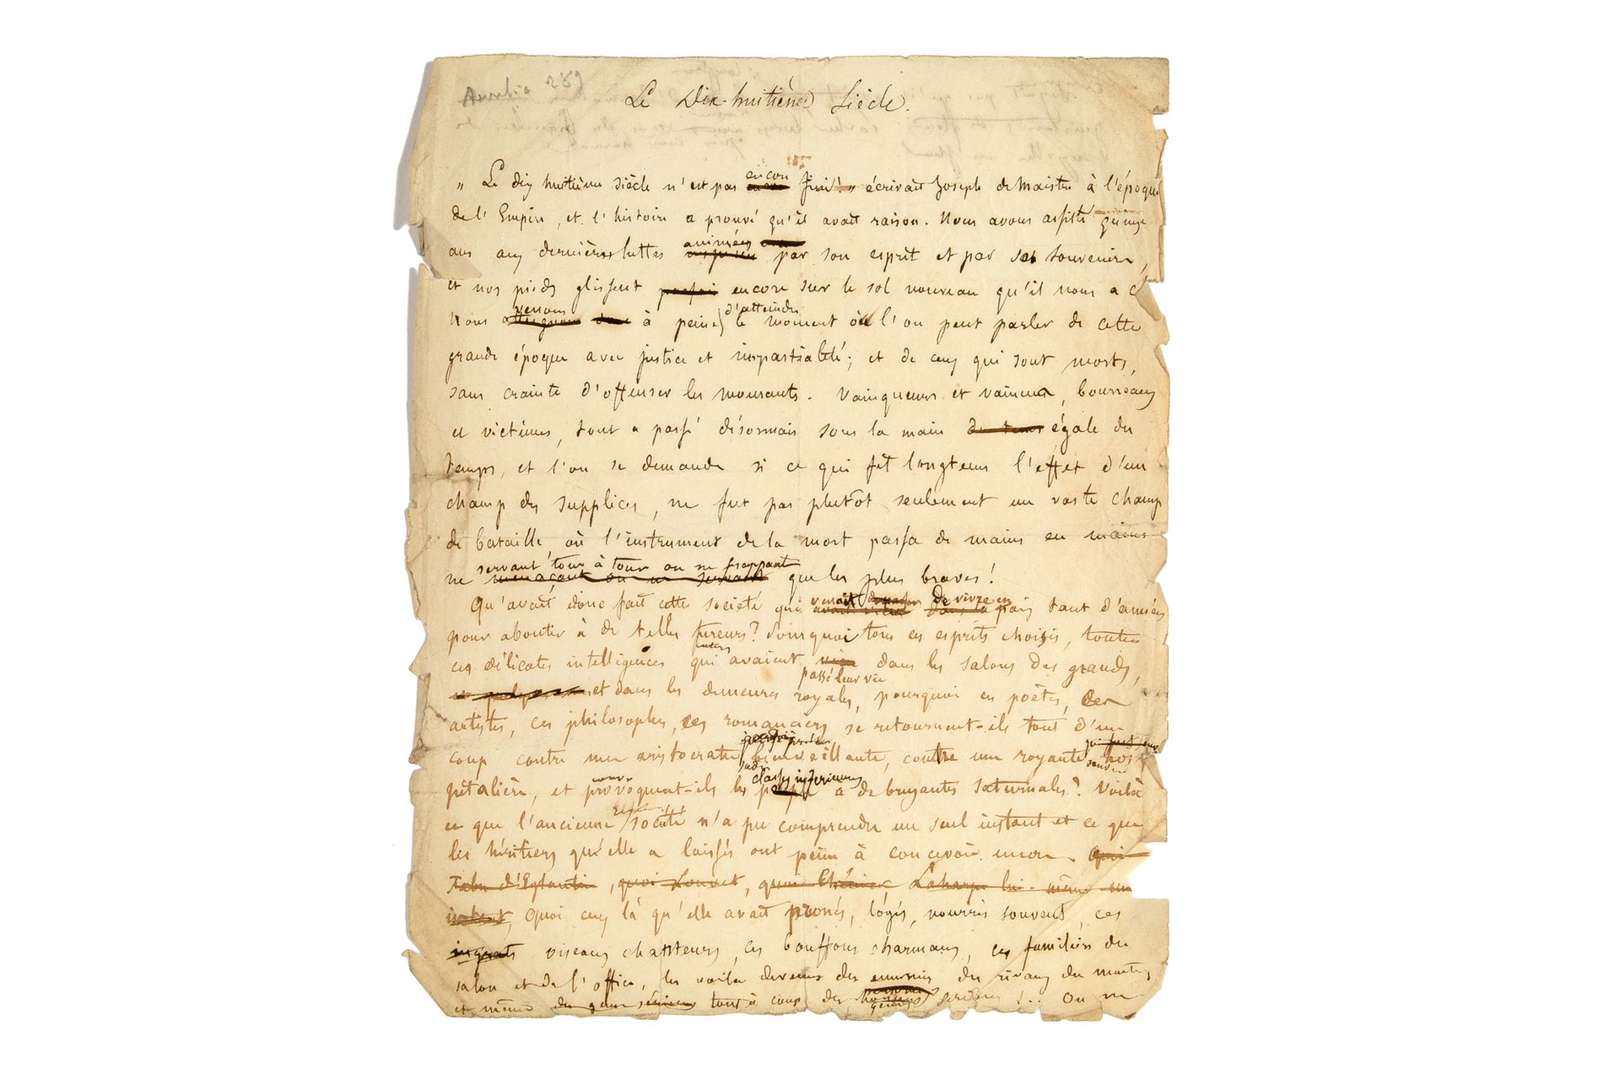 Le Dix-huitième Siècle.
„ Le dix huitième siècle n'est pas encore fini! „ écrivait Joseph de Maistre à l'époque
de l'Empire, et l'histoire a prouvé qu'il avait raison. Nous avons assisté quinze
ans aux dernières luttes animées par son esprit et par ses souvenirs,
et nos pieds glissent encore sur le sol nouveau qu'il nous a
Nous venons à peine d'atteindre le moment où l'on peut parler de cette
grande époque avec justice et impartialité; et de ceux qui sont morts,
sans crainte d'offenser les mourants. Vainqueurs et vaincus, bourreaux
et victimes, tout a passé désormais sous la main du tems égale du
temps, et l'on se demande si ce qui fit longtems l'effet d'un
champ des supplices, ne fut pas plutôt seulement un vaste champ
de bataille, où l'instrument de la mort passa de mains en mains
ne servant tour à tour ou ne frappant
menaçant ou ne servant que les plus braves!
Qu'avait donc fait cette société qui venait de vivre en paix tant d'années
pour aboutir à de telles fureurs? Pourquoi tous ces esprits choisis, toutes
ces délicates intelligences qui avaient passé leur vie dans les salons des grands,
et dans les demeures royales, pourquoi ces poètes, ces
artistes, ces philosophes, ces romanciers se retournent-ils tout d'un
coup contre une aristocratie bienveillante, contre une royauté hos
pitalière, et provoquent-ils les classes inférieures à de bruyantes saturnales? Voilà
ce que l'ancienne société n'a pu comprendre un seul instant et ce que
les héritiers qu'elle a laissés ont peine à concevoir encore. Quoi
Fabre d'Eglantine, quoi Louvet, quoi Chénier, Laharpe lui-même un
instant, Quoi ceux là qu'elle avait prônés, logés, nourris souvent, ces
ingrats oiseaux chanteurs, ces bouffons charmans, ces familiers du
salon et de l'office, les voilà devenus des ennemis des rivaux du maître,
et même des gens sérieux tout à coup des On ne